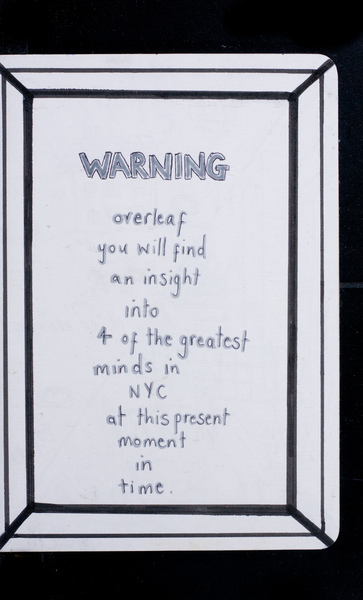 WARNING
overleaf
you will find
an insight
into
4 of the greatest
minds in
NYC
at this present
moment
in
time.